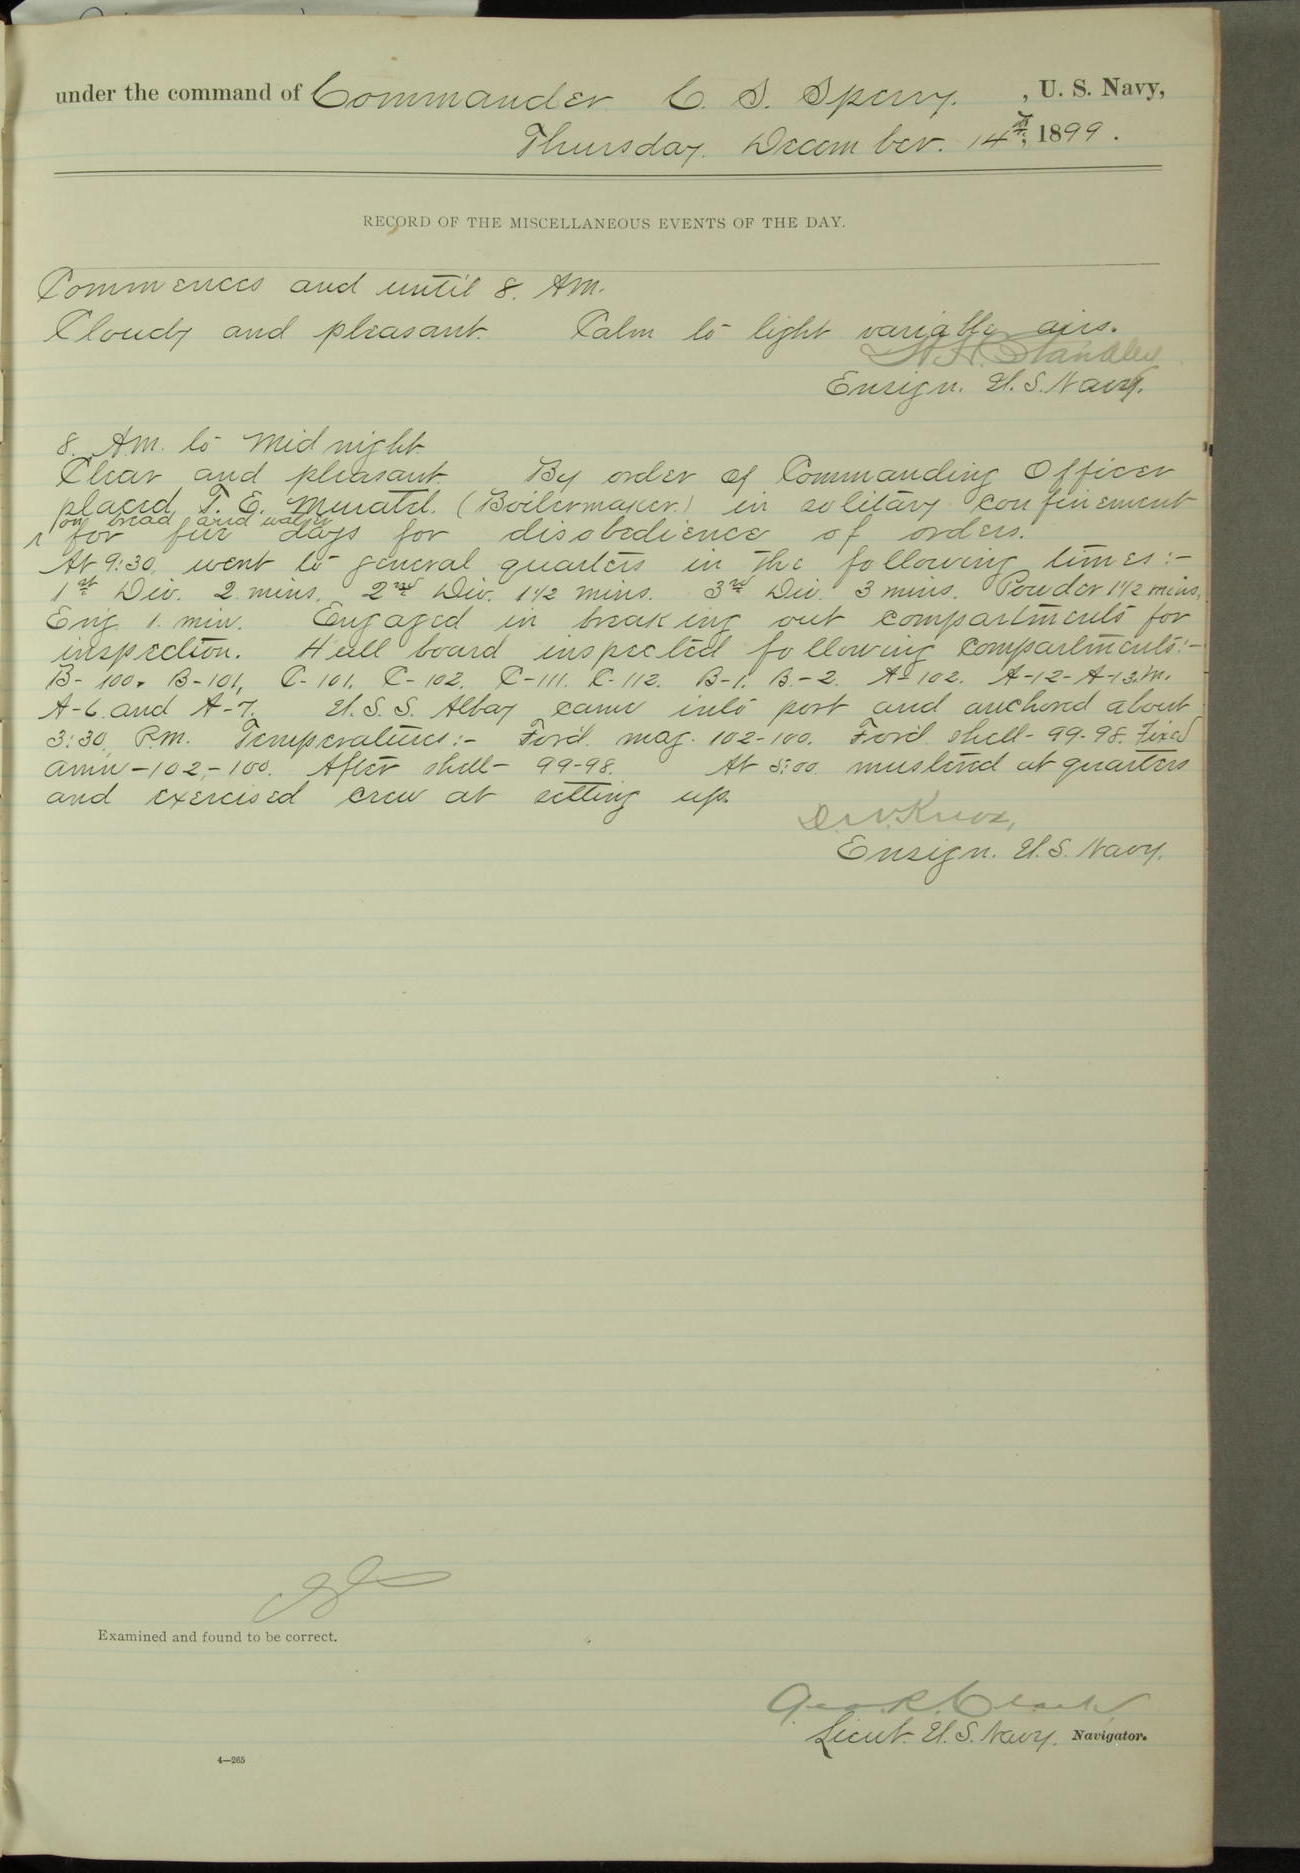 under the command of Commander C. S. Sperry. , U. S. Navy,
Thursday. December. 14th, 1899.
RECORD OF THE MISCELLANEOUS EVENTS OF THE DAY.
Commences and until 8. AM.
Cloudy and pleasant. Calm to light variable airs.
W. H. Standley
Ensign. U. S. Navy.
8. AM. to Midnight
Clear and pleasant. By order of Commanding Officer
placed T. E. (Boilermaker.) in solitary confinement
on bread and water
for five days for disobedience of orders.
At 9:30. went to general quarters in the following times:-
1st Div. 2 mins. 2nd Div. 1 1/2 mins. 3rd Div. 3 mins. Powder 1 1/2 mins,
Eng. 1. min. Engaged in breaking out compartments for
inspection. Hull board inspected following compartments:-
B-100. B-101, C-101. C-102. C-111. C-112. B-1. B-2. A-102. A-12-A-13.M.
A-6 and A-7. U.S.S. Albay came into port and anchored about
3:30. P.M. Temperatures:- For'd. mag. 102-100. For'd. shell-99-98. Fixed
amm-102,-100. After shell- 99-98. At 5:00 mustered at quarters
and exercised crew at setting up.
D. W. Knox,
Ensign. U. S. Navy.
Examined and found to be correct.
Geo. R. Clark,
Lieut. U. S. Navy. Navigator.
4—265